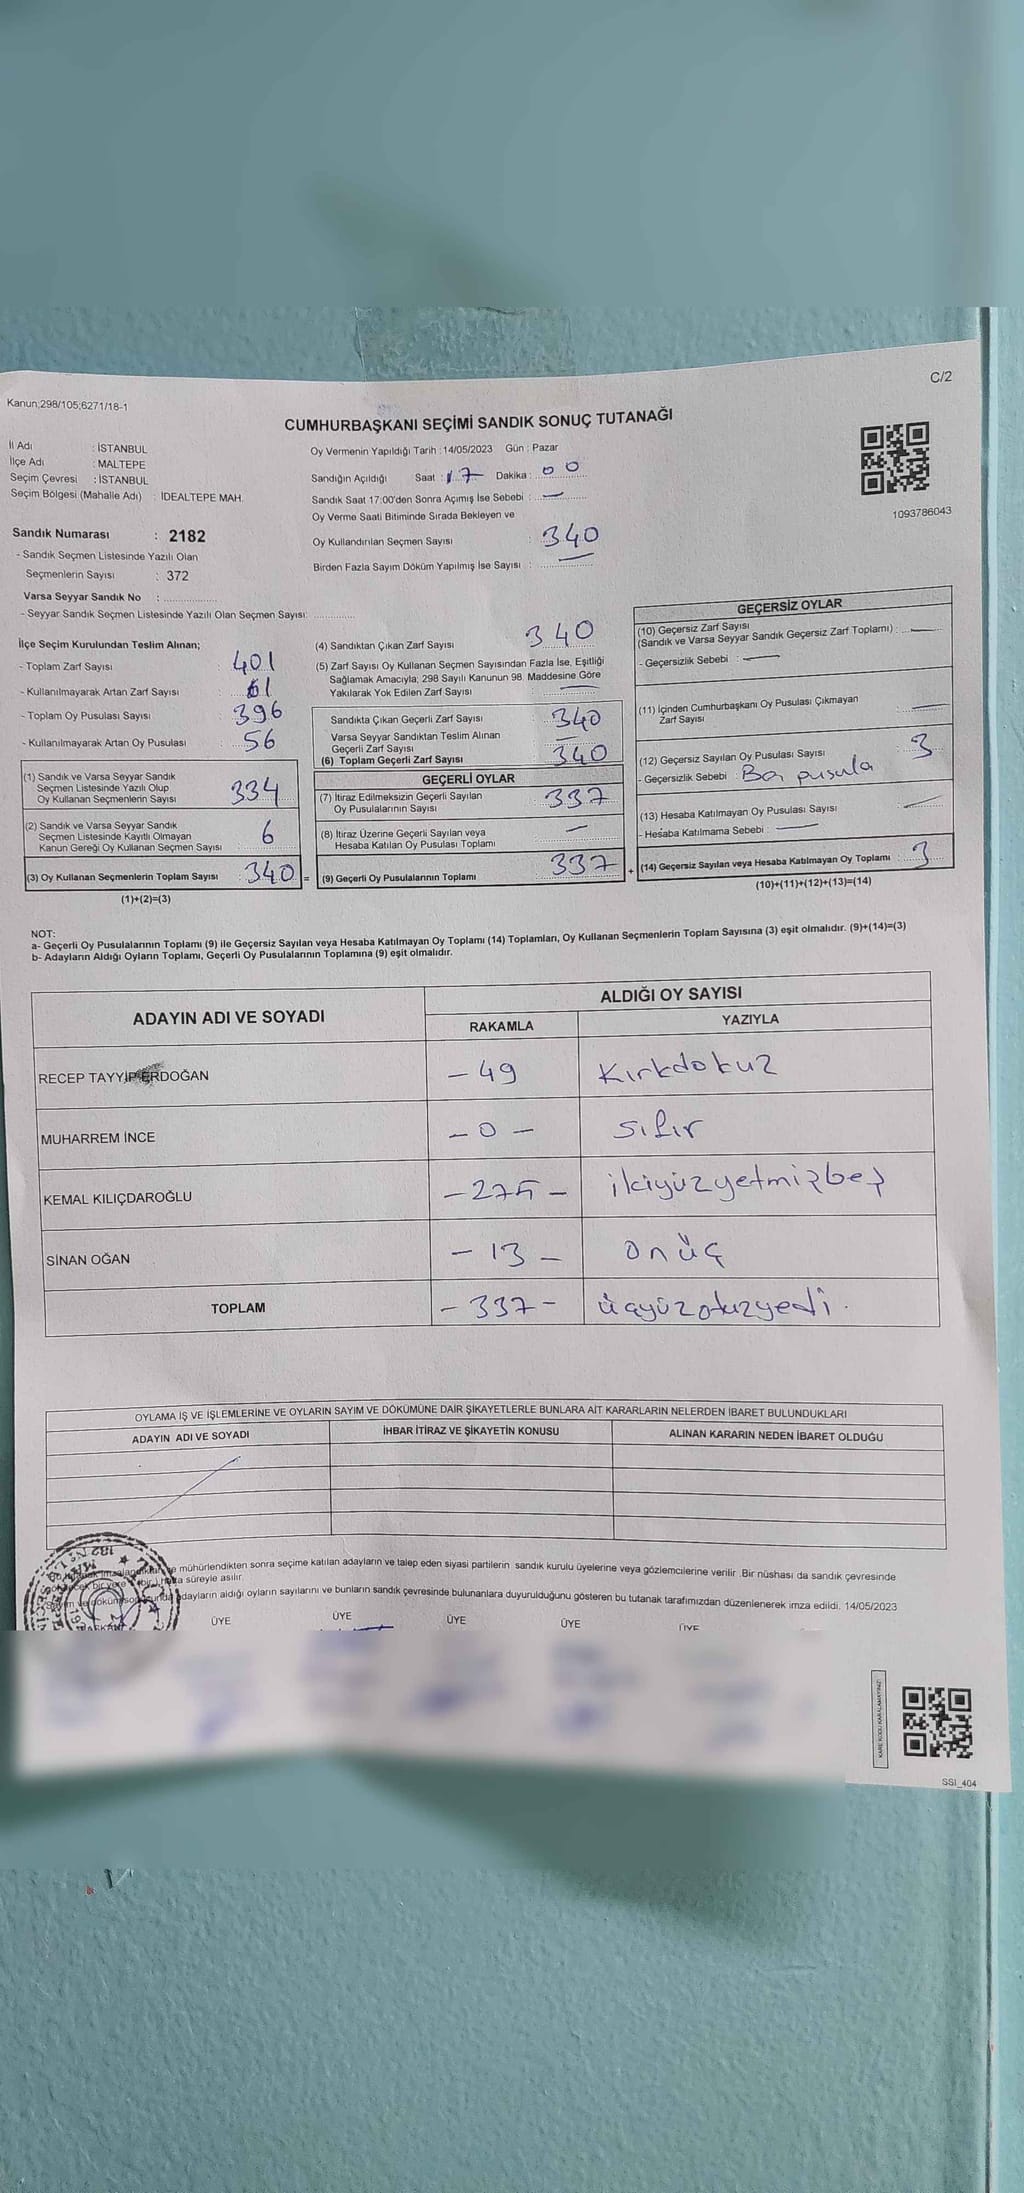 C/2
Kanun;298/105;6271/18-1
CUMHURBAŞKANI SEÇİMİ SANDIK SONUÇ TUTANAĞI
İl Adı : İSTANBUL
İlçe Adı : MALTEPE
Seçim Çevresi : İSTANBUL
Seçim Bölgesi (Mahalle Adı) : İDEALTEPE MAH.
Sandık Numarası : 2182
- Sandık Seçmen Listesinde Yazılı Olan
Seçmenlerin Sayısı : 372
Varsa Seyyar Sandık No :
- Seyyar Sandık Seçmen Listesinde Yazılı Olan Seçmen Sayısı:
Oy Vermenin Yapıldığı Tarih : 14/05/2023 Gün : Pazar
Sandığın Açıldığı Saat : 17 Dakika : 00
Sandık Saat 17:00'den Sonra Açımış İse Sebebi : —
Oy Verme Saati Bitiminde Sırada Bekleyen ve
Oy Kullandırılan Seçmen Sayısı : 340
Birden Fazla Sayım Döküm Yapılmış İse Sayısı : —
1093786043
İlçe Seçim Kurulundan Teslim Alınan;
- Toplam Zarf Sayısı : 401
- Kullanılmayarak Artan Zarf Sayısı : 61
- Toplam Oy Pusulası Sayısı : 396
- Kullanılmayarak Artan Oy Pusulası : 56
(1) Sandık ve Varsa Seyyar Sandık
Seçmen Listesinde Yazılı Olup
Oy Kullanan Seçmenlerin Sayısı : 334
(2) Sandık ve Varsa Seyyar Sandık
Seçmen Listesinde Kayıtlı Olmayan
Kanun Gereği Oy Kullanan Seçmen Sayısı : 6
(3) Oy Kullanan Seçmenlerin Toplam Sayısı : 340 =
(1)+(2)=(3)
(4) Sandıktan Çıkan Zarf Sayısı : 340
(5) Zarf Sayısı Oy Kullanan Seçmen Sayısından Fazla İse, Eşitliği
Sağlamak Amacıyla; 298 Sayılı Kanunun 98. Maddesine Göre
Yakılarak Yok Edilen Zarf Sayısı : —
Sandıkta Çıkan Geçerli Zarf Sayısı : 340
Varsa Seyyar Sandıktan Teslim Alınan
Geçerli Zarf Sayısı : —
(6) Toplam Geçerli Zarf Sayısı : 340
GEÇERLİ OYLAR
(7) İtiraz Edilmeksizin Geçerli Sayılan
Oy Pusulalarının Sayısı : 337
(8) İtiraz Üzerine Geçerli Sayılan veya
Hesaba Katılan Oy Pusulası Toplamı : —
(9) Geçerli Oy Pusulalarının Toplamı : 337 +
GEÇERSİZ OYLAR
(10) Geçersiz Zarf Sayısı
(Sandık ve Varsa Seyyar Sandık Geçersiz Zarf Toplamı) : —
- Geçersizlik Sebebi : —
(11) İçinden Cumhurbaşkanı Oy Pusulası Çıkmayan
Zarf Sayısı : —
(12) Geçersiz Sayılan Oy Pusulası Sayısı : 3
- Geçersizlik Sebebi : Boş pusula
(13) Hesaba Katılmayan Oy Pusulası Sayısı : —
- Hesaba Katılmama Sebebi : —
(14) Geçersiz Sayılan veya Hesaba Katılmayan Oy Toplamı : 3
(10)+(11)+(12)+(13)=(14)
NOT:
a- Geçerli Oy Pusulalarının Toplamı (9) ile Geçersiz Sayılan veya Hesaba Katılmayan Oy Toplamı (14) Toplamları, Oy Kullanan Seçmenlerin Toplam Sayısına (3) eşit olmalıdır. (9)+(14)=(3)
b- Adayların Aldığı Oyların Toplamı, Geçerli Oy Pusulalarının Toplamına (9) eşit olmalıdır.
ADAYIN ADI VE SOYADI ALDIĞI OY SAYISI
RAKAMLA YAZIYLA
RECEP TAYYİP ERDOĞAN – 49 Kırkdokuz
MUHARREM İNCE – 0 – sıfır
KEMAL KILIÇDAROĞLU – 275 – ikiyüzyetmişbeş
SİNAN OĞAN – 13 – onüç
TOPLAM – 337 – üçyüzotuzyedi.
OYLAMA İŞ VE İŞLEMLERİNE VE OYLARIN SAYIM VE DÖKÜMÜNE DAİR ŞİKAYETLERLE BUNLARA AİT KARARLARIN NELERDEN İBARET BULUNDUKLARI
ADAYIN ADI VE SOYADI İHBAR İTİRAZ VE ŞİKAYETİN KONUSU ALINAN KARARIN NEDEN İBARET OLDUĞU
mühürlendikten sonra seçime katılan adayların ve talep eden siyasi partilerin sandık kurulu üyelerine veya gözlemcilerine verilir. Bir nüshası da sandık çevresinde
süreyle asılır.
adayların aldığı oyların sayılarını ve bunların sandık çevresinde bulunanlara duyurulduğunu gösteren bu tutanak tarafımızdan düzenlenerek imza edildi. 14/05/2023
ÜYE ÜYE ÜYE ÜYE ÜYE
KARE KODU KARALAMAYINIZ!
SSI_404